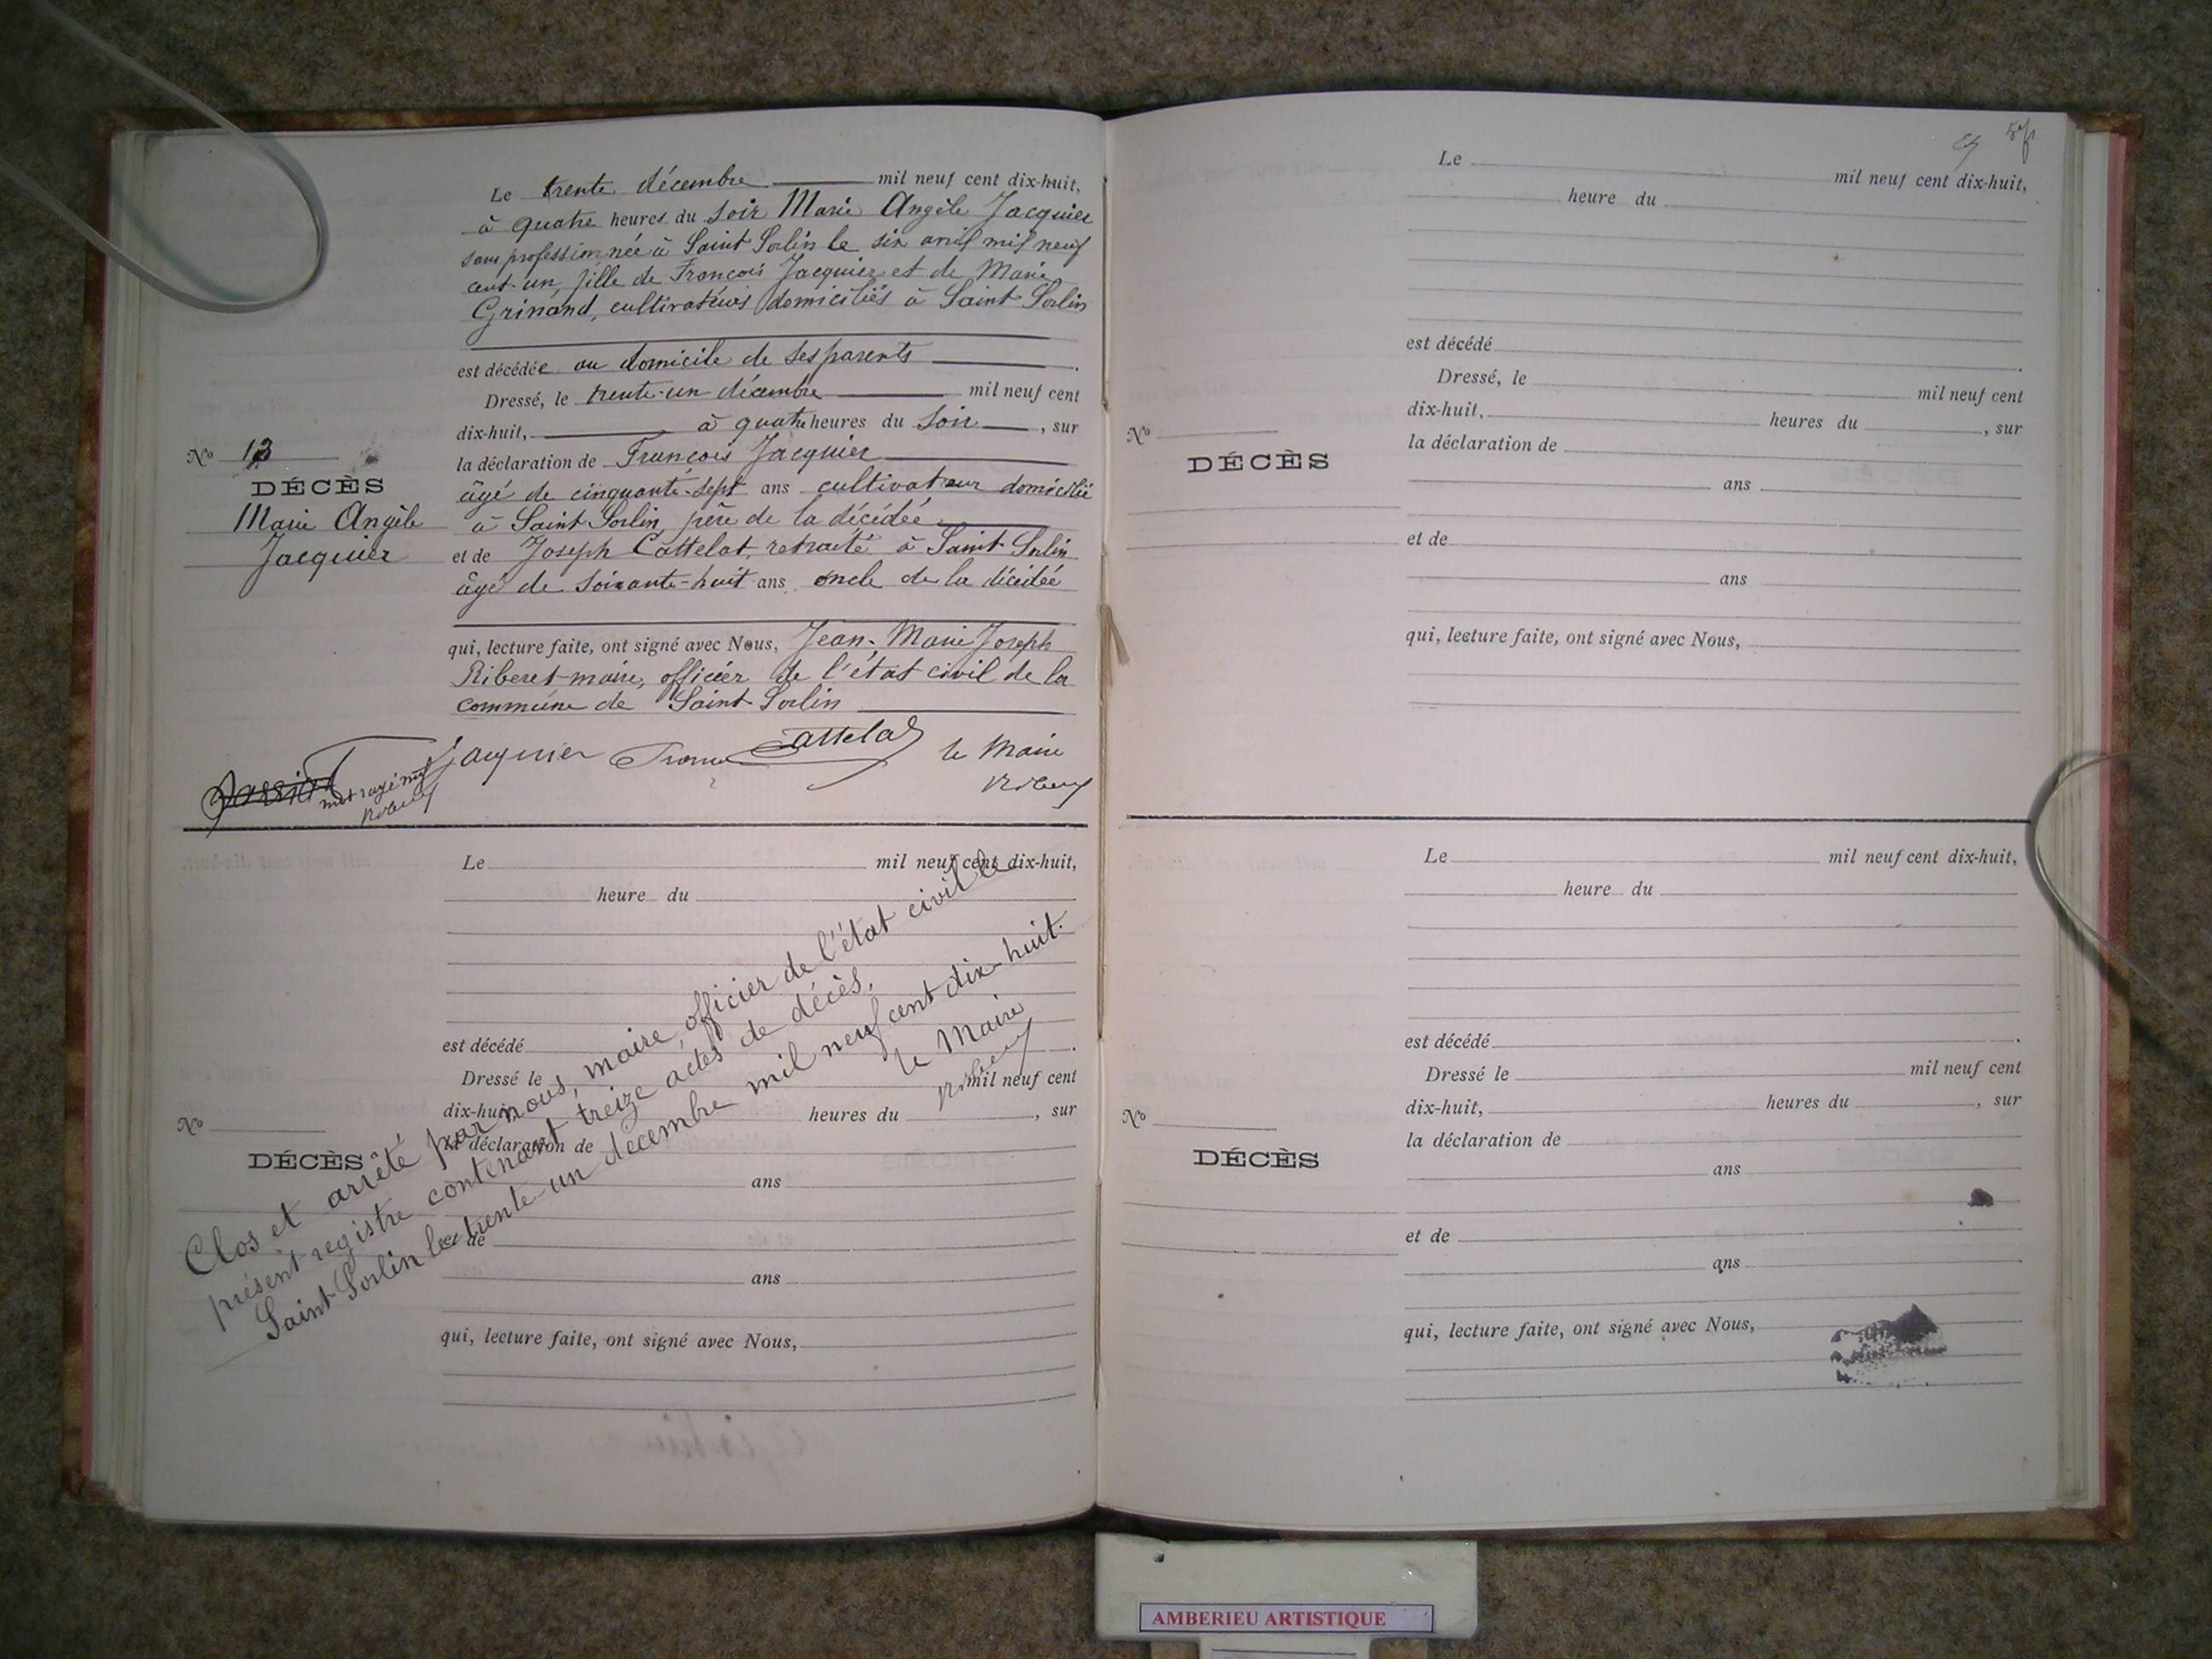 Le trente décembre mil neuf cent dix-huit,
à quatre heures du soir Marie Angèle Jacquier
sans profession, née à Saint Sorlin le six avril mil neuf
cent-un, fille de François Jacquier et de Marie
Grinand, cultivateurs domiciliés à Saint Sorlin
est décédée au domicile de ses parents
Dressé, le trente-un décembre mil neuf cent
dix-huit, à quatre heures du soir, sur
la déclaration de François Jacquier
âgé de cinquante-sept ans cultivateur domicilié
à Saint Sorlin, père de la décédée
et de Joseph Cattelat, retraité à Saint Sorlin
âgé de soixante-huit ans, oncle de la décédée
qui, lecture faite, ont signé avec Nous, Jean-Marie Joseph
Riberet maire, officier de l'état civil de la
commune de Saint Sorlin
No 13
DÉCÈS
Marie Angèle
Jacquier
Jacquier Cattelat le Maire
mot rayé nul
Le mil neuf cent dix-huit,
heure du
est décédé .
Dressé le mil neuf cent
dix-huit, heures du , sur
la déclaration de
ans
et de
ans
qui, lecture faite, ont signé avec Nous,
No
DÉCÈS
Clos et arrêté par nous, maire, officier de l'état civil le
présent registre contenant treize actes de décès.
Saint Sorlin le trente-un décembre mil neuf cent dix-huit.
le Maire
Le mil neuf cent dix-huit,
heure du
est décédé .
Dressé, le mil neuf cent
dix-huit, heures du , sur
la déclaration de
ans
et de
ans
qui, lecture faite, ont signé avec Nous,
No
DÉCÈS
Le mil neuf cent dix-huit,
heure du
est décédé .
Dressé le mil neuf cent
dix-huit, heures du , sur
la déclaration de
ans
et de
ans
qui, lecture faite, ont signé avec Nous,
No
DÉCÈS
AMBERIEU ARTISTIQUE